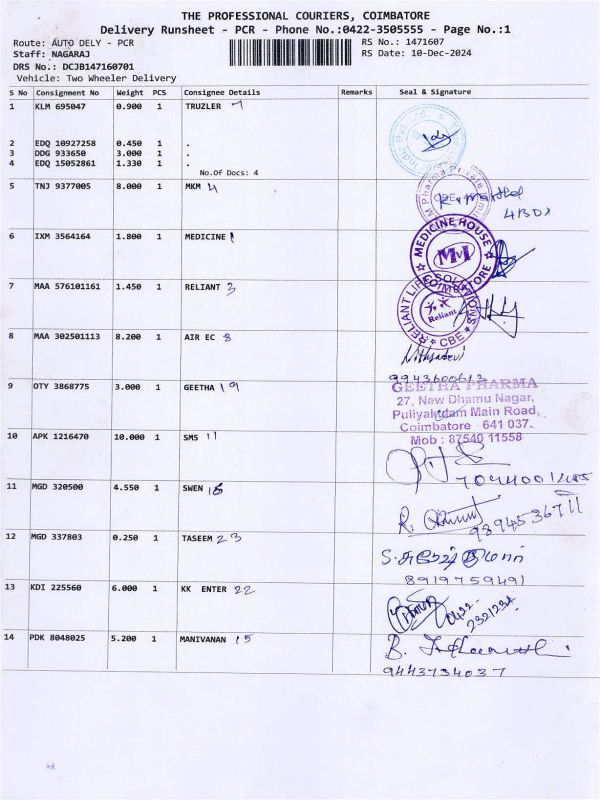 THE PROFESSIONAL COURIERS, COIMBATORE
Delivery Runsheet - PCR - Phone No.:0422-3505555 - Page No.:1
Route: AUTO DELY - PCR RS No.: 1471607
Staff: NAGARAJ RS Date: 10-Dec-2024
DRS No.: DCJB147160701
Vehicle: Two Wheeler Delivery
S No Consignment No Weight PCS Consignee Details Remarks Seal & Signature
1 KLM 695047 0.900 1 TRUZLER 7
2 EDQ 10927258 0.450 1 .
3 DDG 933650 3.000 1 .
4 EDQ 15052861 1.330 1 .
No.Of Docs: 4
5 TNJ 9377005 8.000 1 MKM 4
Pharma Private
CBE
6 IXM 3564164 1.800 1 MEDICINE 1
MEDICINE HOUSE
COIMBATORE
7 MAA 576101161 1.450 1 RELIANT 3
RELIANT LIFE SOLUTIONS
Reliant
CBE
8 MAA 302501113 8.200 1 AIR EC 8
9943600612
9 OTY 3868775 3.000 1 GEETHA 19
GEETHA PHARMA
27, New Dhamu Nagar,
Puliyakulam Main Road,
Coimbatore - 641 037.
Mob : 87540 11558
10 APK 1216470 10.000 1 SMS 11
11 MGD 320500 4.550 1 SWEN 18
9894536711
12 MGD 337803 0.250 1 TASEEM 23
8919759491
13 KDI 225560 6.000 1 KK ENTER 22
14 PDK 8048025 5.200 1 MANIVANAN 15
9443734037